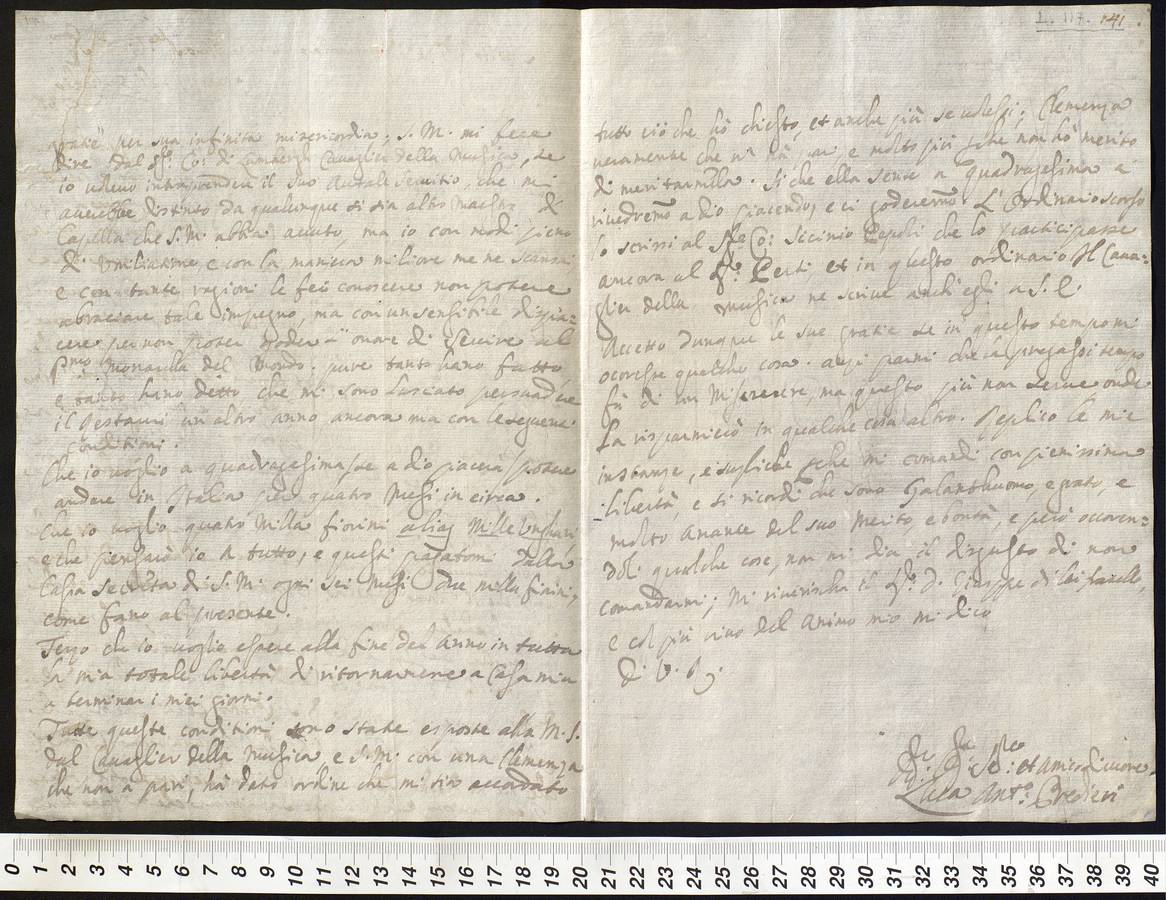 L. 117. 141.
gratie per sua infinita misericordia; S. M. mi fece
dire dal Sr. Co: di Lamberg Cavaglier della Musica, se
io volevo intraprendere il suo attale servitio, che mi
averebbe distinto da qualunque si sia altro Maestro di
Capella che S. M. abbia avuto, ma io con modi pieni
di umiliatione, e con la maniera migliore me ne scansai
e con tante ragioni le feci conoscere non potere
abraciare tale impegno, ma con un sensibile dispia=
cere per non poter godere l'onore di servire al
Pmo Monarcha del Mondo. pure tanto hano fatto,
e tanto hano detto che mi sono lasciato persuadere
il restarvi un altro anno ancora ma con le seguenti
conditioni.
Che io voglio a quadragesima se a dio piacerà potere
andare in Italia per quatro Mesi in circa.
Che io voglio quatro Milla fiorini alias Mille Unghari
e che pensarò io a tutto, e questi pagatomi dalla
Cassa secreta di S. M. ogni sei Mesi due milla fiorini,
come fano al presente.
Terzo che io voglio essere alla fine del anno in tutta
la mia totale libertà di ritornarmene a Casa mia
a terminar i miei giorni.
Tutte queste conditioni sono state esposte alla M. S.
dal Cavaglier della Musica e S. M. con una Clemenza
che non a pari, hà dato ordine che mi sia accordato
tutto ciò che hò chiesto, et anche più se volessi; Clemenza
veramente che nõ hà pari, e molto più perche non hò merito
di meritarmella. Si che ella sente a quadragesima ci
rivedremo a dio piacendo, e ci goderemo. L'Ordinario scorso
lo scrissi al Sr. Co: Sicinio Pepoli che lo participasse
ancora al Sr. Perti, et in questo ordinario Il Cava=
glier della Musica ne scrive anch'egli a S. E.
Accetto dunque le sue gratie se in questo tempo mi
ocoresse qualche cosa. anzi parmi che la pregassi tempo
fù di un Miserere, ma questo più non serve onde
la risparmierò in qualche cosa altro. Replico le mie
instanze, e supliche che mi comandi con pienissima
libertà, e si ricordi che sono Galanthuomo, e grato, e
molto amante del suo merito, e bontà, e però occoren=
doli qualche cosa, non mi dia il disgusto di non
comandarmi; Mi riverischa il Sr. D. Giuseppe di lei fratello,
e col più vivo del animo mio mi dico
di V. S.
Se: et amico di cuore
Luca Anto: Predieri